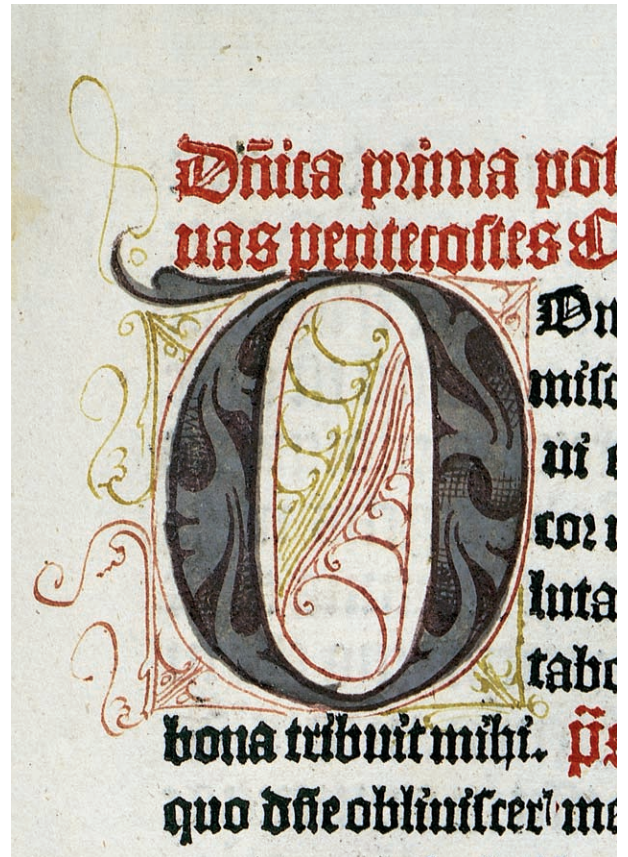 Dn̄ica prima post
uas pentecostes O
O Dn
misc
ui
cor
luta
tabo
bona tribuit mihi. p̄s
quo dn̄e obliuiscer' me